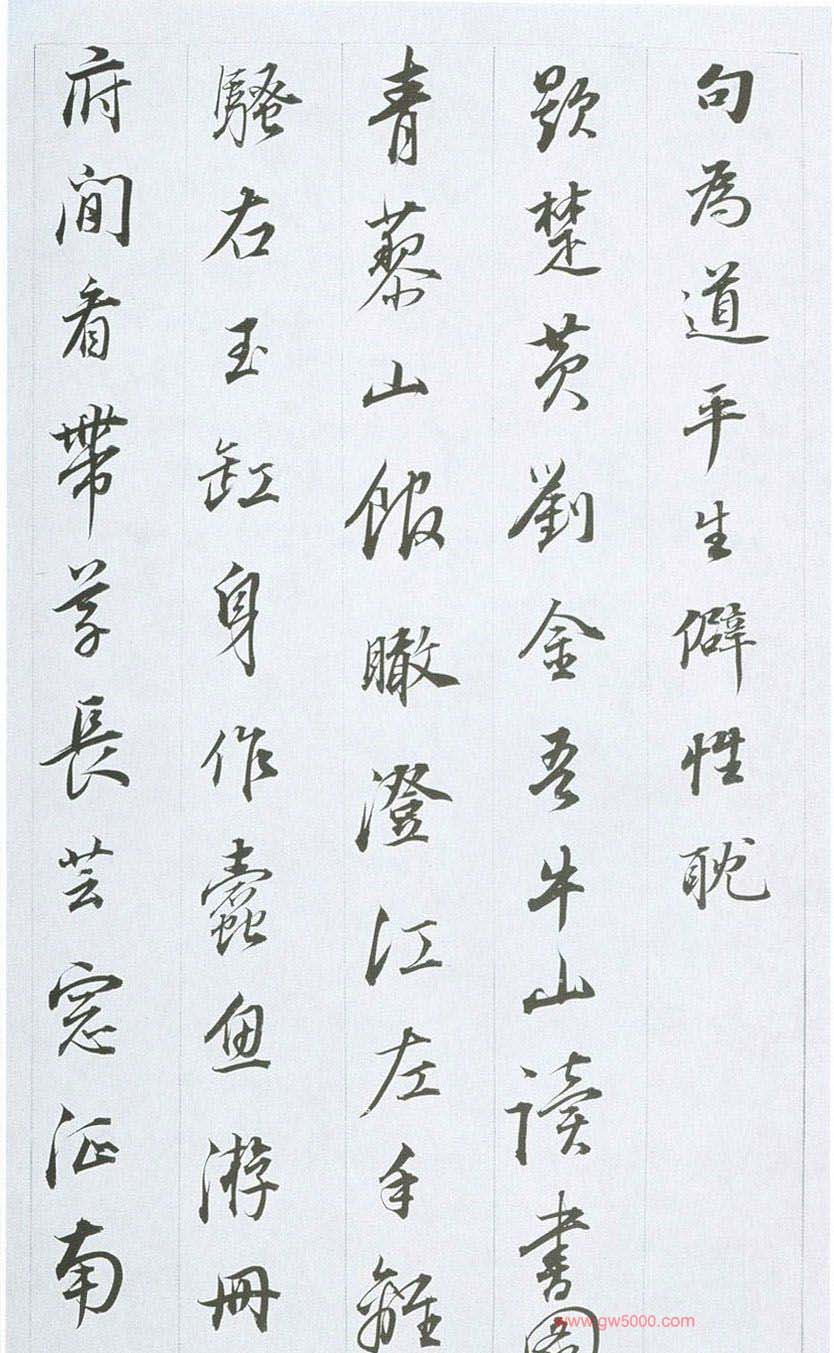 句為道平生僻性耽
題楚黄劉金吾牛山讀書圖
青藜山館瞰澄江左手離
騷右玉缸身作蠹魚游冊
府閒看帶草長芸窓征南
www.gw5000.com